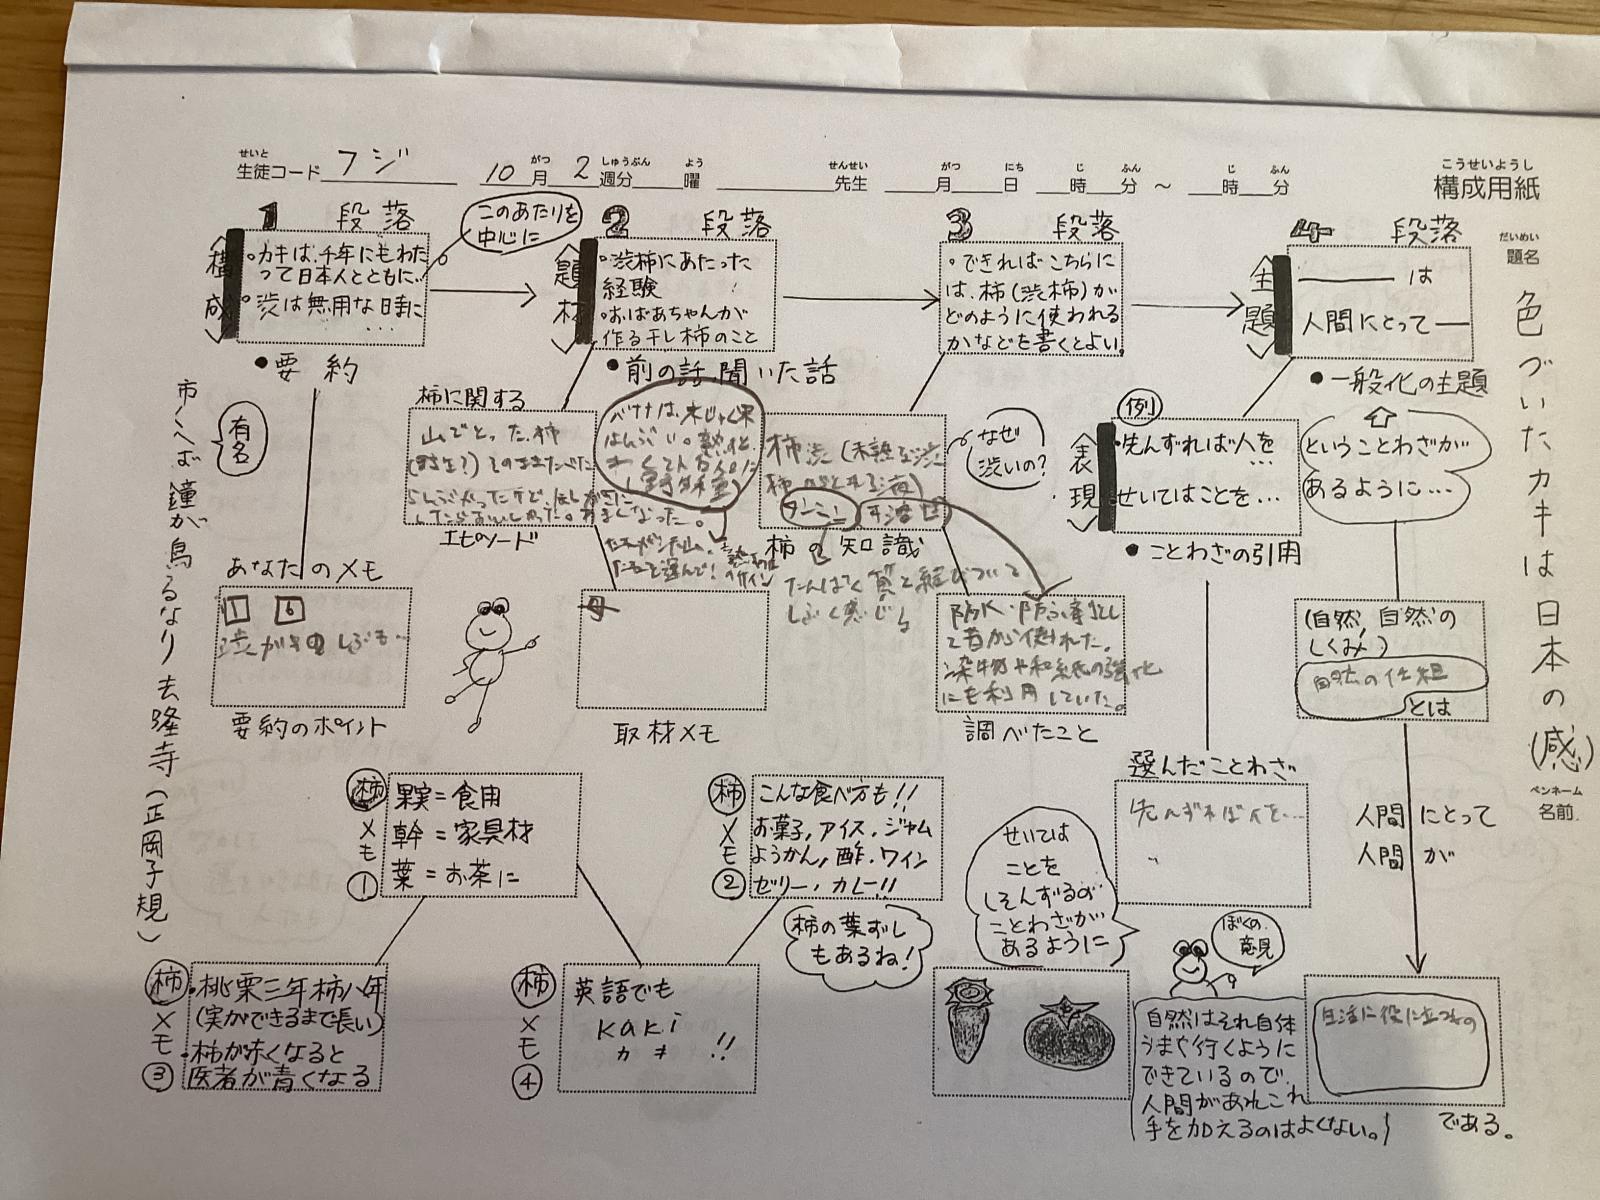 構成用紙
生徒コード フジ 10月 2週分 曜 先生 月 日 時 分 ～ 時 分
題名
色づいたカキは日本の(感)
ペンネーム
名前
1 段落
〈構成〉
・カキは、千年にもわた
って日本人とともに…
・渋は無用な時に
…
このあたりを
中心に
●要約
2 段落
〈題材〉
・渋柿にあたった
経験
・おばあちゃんが
作る干し柿のこと
●前の話、聞いた話
3 段落
・できればこちらに
は、柿(渋柿)が
どのように使われる
かなどを書くとよい。
4 段落
〈主題〉
―― は
人間にとって ―
●一般化の主題
市くへば 鐘が鳥るなり 去隆寺 (正岡子規)
有名
あなたのメモ
1 6
要約のポイント
柿に関する
山でとった柿
エピソード
バナナは、
柿渋(未熟な渋
タンニン
柿の知識
たんぱく質と結びついて
しぶく感じる
なぜ
渋いの?
取材メモ
防水・防腐
て昔から使われた。
染物や和紙の強化
にも利用していた。
調べたこと
〈表現〉
例
・先んずれば人を
…
せいてはことを…
●ことわざの引用
ということわざが
あるように…
選んだことわざ
先んずれば人を…
(自然、自然の
しくみ)
自然の仕組
とは
人間にとって
人間が
柿メモ①
果実=食用
幹=家具材
葉=お茶に
柿メモ②
こんな食べ方も!!
お菓子,アイス,ジャム
ようかん,酢,ワイン
ゼリー,カレー!!
柿の葉ずし
もあるね!
柿メモ③
・桃栗三年柿八年
(実ができるまで長い)
・柿が赤くなると
医者が青くなる
柿メモ④
英語でも
kaki
カキ !!
せいては
ことを
しそんずるの
ことわざが
あるように
ぼくの
意見
自然はそれ自体
うまく行くように
できているので、
人間があれこれ
手を加えるのはよくない。
生活に役に立つもの
である。